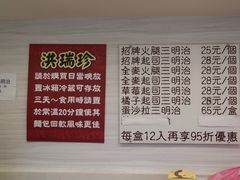 洪瑞珍
請於購買日當晚放
置冰箱冷藏可存放
三天~食用時請置
於常溫20分鐘使其
麵包回軟風味更佳
招牌火腿三明治 25元/個
招牌起司三明治 28元/個
全麥火腿三明治 28元/個
全麥起司三明治 28元/個
草莓起司三明治 28元/個
橘子起司三明治 28元/個
蛋沙拉三明治 65元/盒
每盒12入再享95折優惠